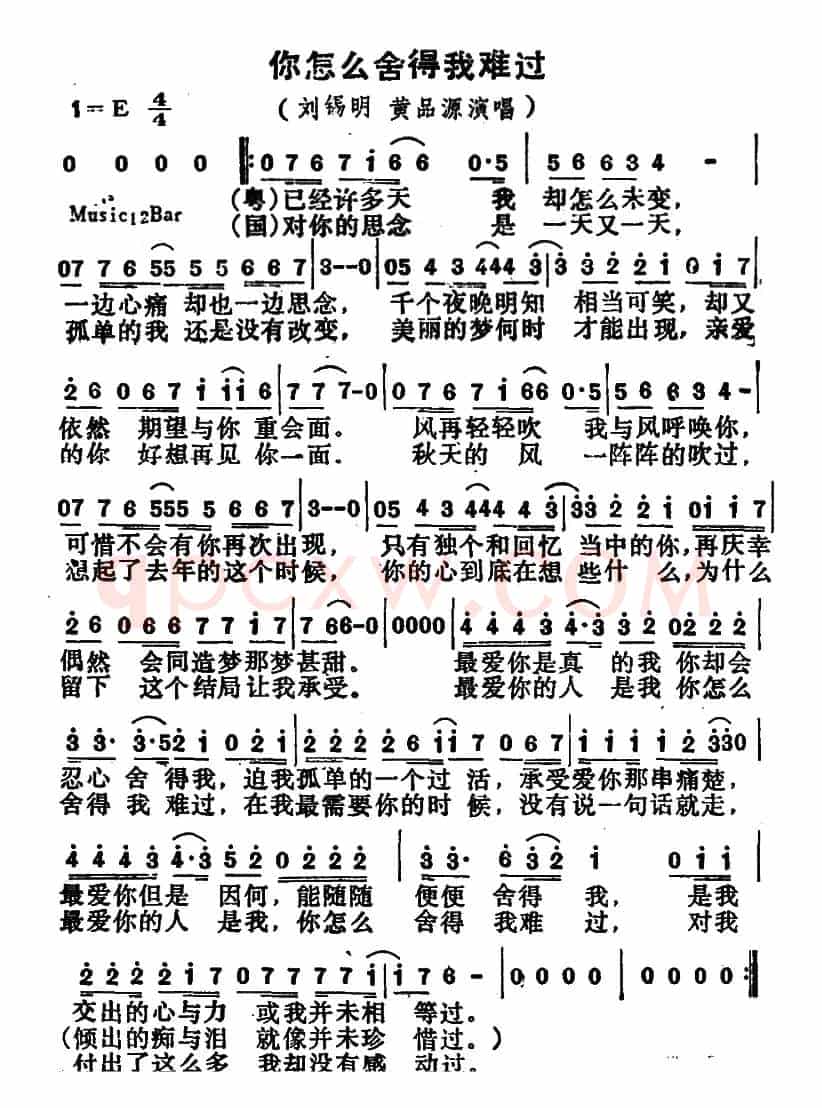 你怎么舍得我难过
1=E 4/4 (刘锡明 黄品源演唱)
0 0 0 0 ‖:0767 1̇66 0·5|56634 -|
Music12Bar (粤)已经许多天 我 却怎么未变,
(国)对你的思念 是 一天又一天,
07 7 6 55 5 5 6 6 7|3--0|05 4 3 444 3̇|3̇3̇ 2̇ 2̇ 1̇ 0 1̇ 7
一边心痛 却也一边思念, 千个夜晚明知 相当可笑,却又
孤单的我 还是没有改变, 美丽的梦何时 才能出现,亲爱
2̇6 0 6 7 1̇ 1̇1̇6|77 7-0|0 7 6 7 1̇ 66 0·5|56634-|
依然 期望与你 重会面。 风再轻轻吹 我与风呼唤你,
的你 好想再见 你一面. 秋天的 风 一阵阵的吹过,
07 7 6 555 5 6 6 7|3--0|05 4 3 444 4 3̇|3̇3̇3̇ 2̇ 2̇ 1̇ 01̇ 1̇ 7
可惜不会有你再次出现, 只有独个和回忆 当中的你,再庆幸
想起了去年的这个时候, 你的心到底在想 些什 么,为什么
2̇6 0 6 6 7 7 1̇ 7|7 66-0|0000|4̇ 4̇ 4̇ 3̇ 4̇·3̇ 3̇ 2̇ 02̇ 2̇ 2̇|
偶然 会同造梦那梦甚甜。 最爱你是真 的我 你却会
留下 这个结局让我承受。 最爱你的人 是我 你怎么
3̇ 3̇· 3̇·5̇2̇ 1̇ 0 2̇1̇|2̇2̇2̇ 2̇ 6 1̇1̇ 7 0 6 7|1̇ 1̇ 1̇ 1̇ 2̇ 3̇3̇0
忍心 舍 得我,迫我孤单的一个过 活,承受爱你那串痛楚,
舍得 我 难过,在我最需要你的时 候,没有说一句话就走,
4̇ 4̇ 4̇ 3̇ 4̇·3̇ 5̇2̇ 0 2̇2̇2̇|3̇ 3̇· 6̇ 3̇2̇ 1̇ 0 1̇1̇|
最爱你但是 因何,能随随 便便 舍得 我, 是我
最爱你的人 是我,你怎么 舍得 我难 过, 对我
2̇ 2̇ 2̇ 2̇ 1̇ 7 0 7 7 7 7 7 1̇|1̇ 7 6 -|0 0 0 0|0 0 0 0:‖
交出的心与力 或我并未相 等过。
(倾出的痴与泪 就像并未珍 惜过。)
付出了这么多 我却没有感 动过。
qpcxw.com